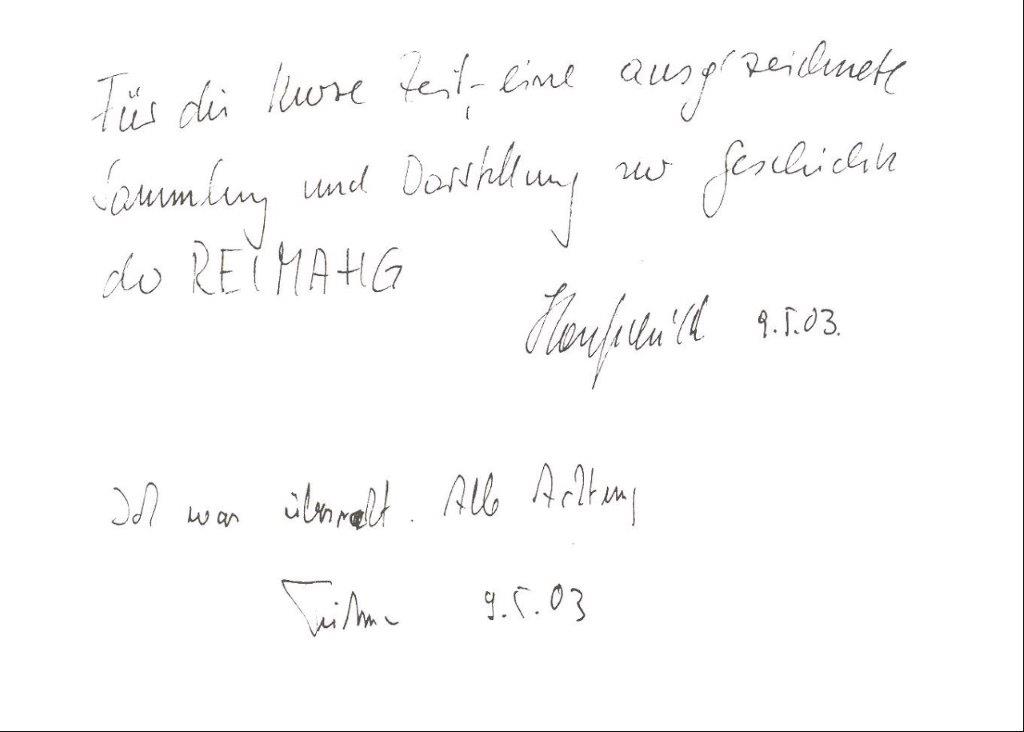 Für die kurze Zeit - eine ausgezeichnete
Sammlung und Darstellung zur Geschichte
der REIMAHG
9.5.03.
Ich war überrascht. Alle Achtung
9.5.03